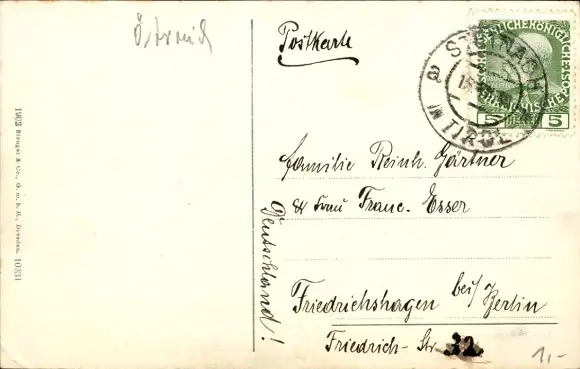 Österreich
Postkarte
KAISERLICHE KÖNIGLICHE
ÖSTERREICHISCHE POST
5 HELLER 5
STEINACH
IN TIROL
Familie Reinh. Gärtner
& Frau Franc. Esser
Friedrichshagen bei/ Berlin
Friedrich-Str 32.
Deutschland!
1903 Stengel & Co., G. m. b. H., Dresden. 10331
1,-